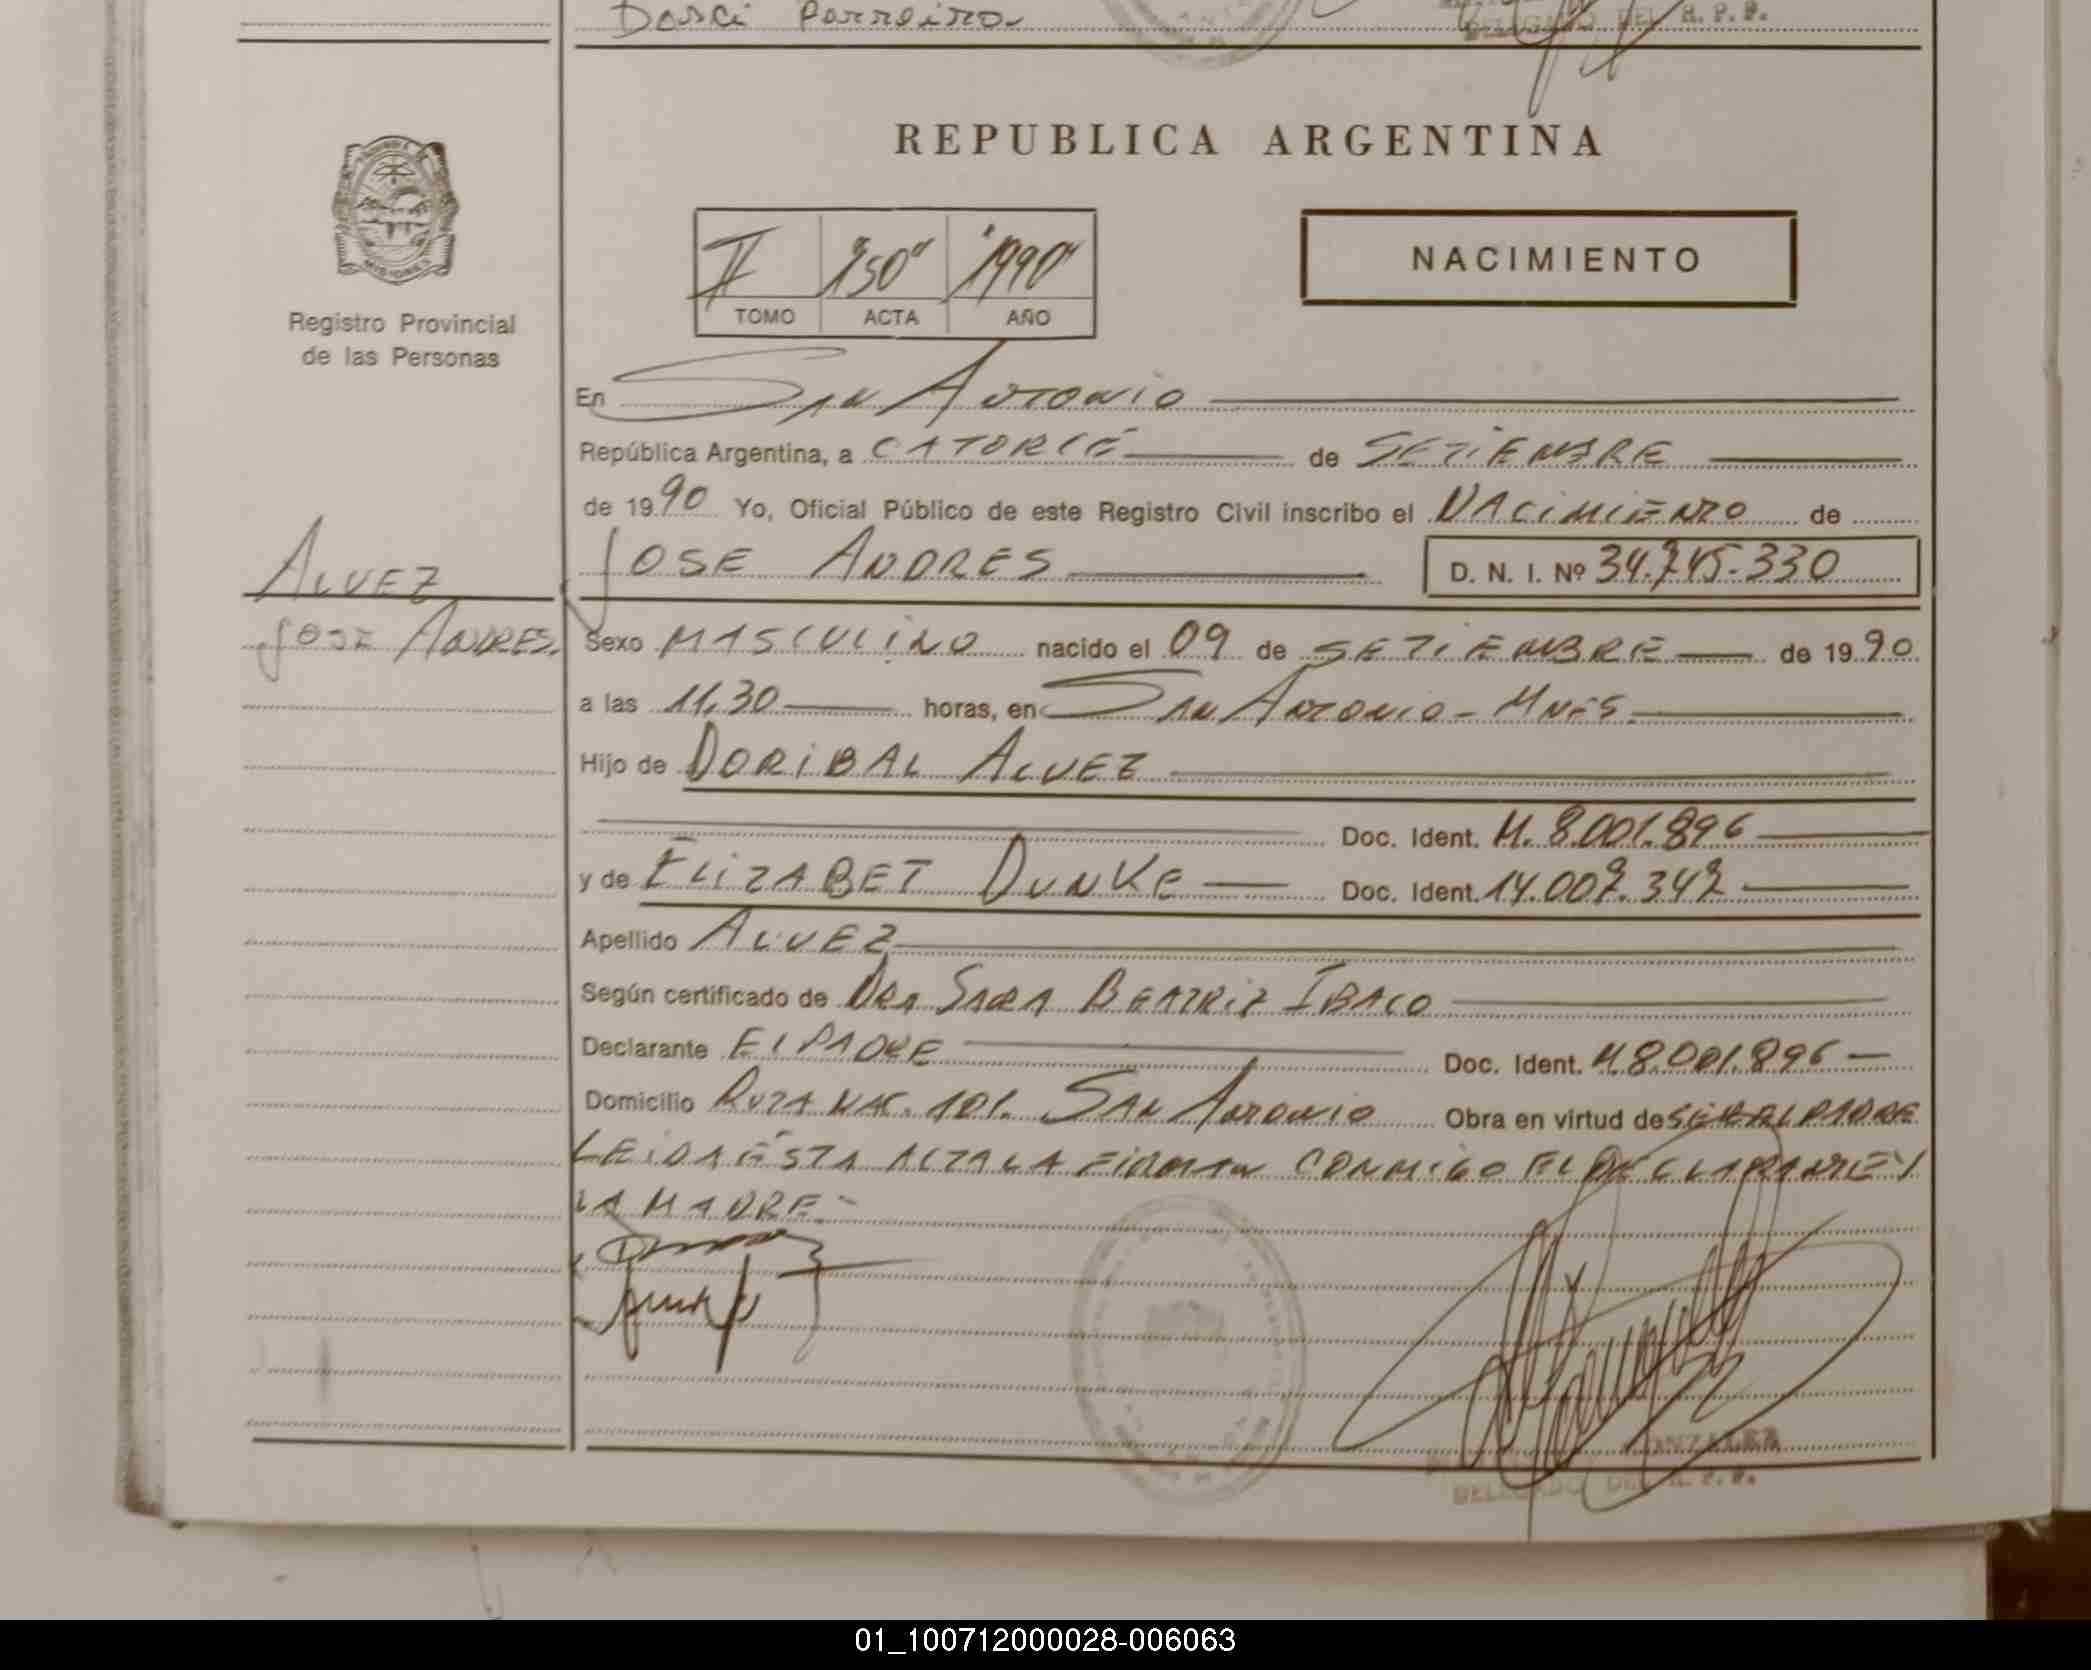 Dorci Ferreira
DELEGADO DEL R. P. P.
REPUBLICA ARGENTINA
MISIONES
Registro Provincial
de las Personas
II "150" "1990"
TOMO ACTA AÑO
NACIMIENTO
En San Antonio
República Argentina, a CATORCE de SETIEMBRE
de 1990 Yo, Oficial Público de este Registro Civil inscribo el NACIMIENTO de
JOSE ANDRES D. N. I. Nº 34.745.330
ALVEZ
JOSE ANDRES.
Sexo MASCULINO nacido el 09 de SETIEMBRE de 1990
a las 11,30 horas, en SAN ANTONIO - MNES.
Hijo de DORIBAL ALVEZ
Doc. Ident. M. 8.001.896
y de ELIZABET DUNKE Doc. Ident. 14.007.347
Apellido ALVEZ
Según certificado de DRA SARA BEATRIZ IBACO
Declarante El PADRE Doc. Ident. M 8.001.896
Domicilio RUTA NAC. 101. SAN ANTONIO Obra en virtud de SER EL PADRE
LEIDA ESTA ACTA LA FIRMAN CONMIGO EL DECLARANTE Y
LA MADRE.-
GONZALEZ
DELEGADO DEL R. P. P.
01_100712000028-006063